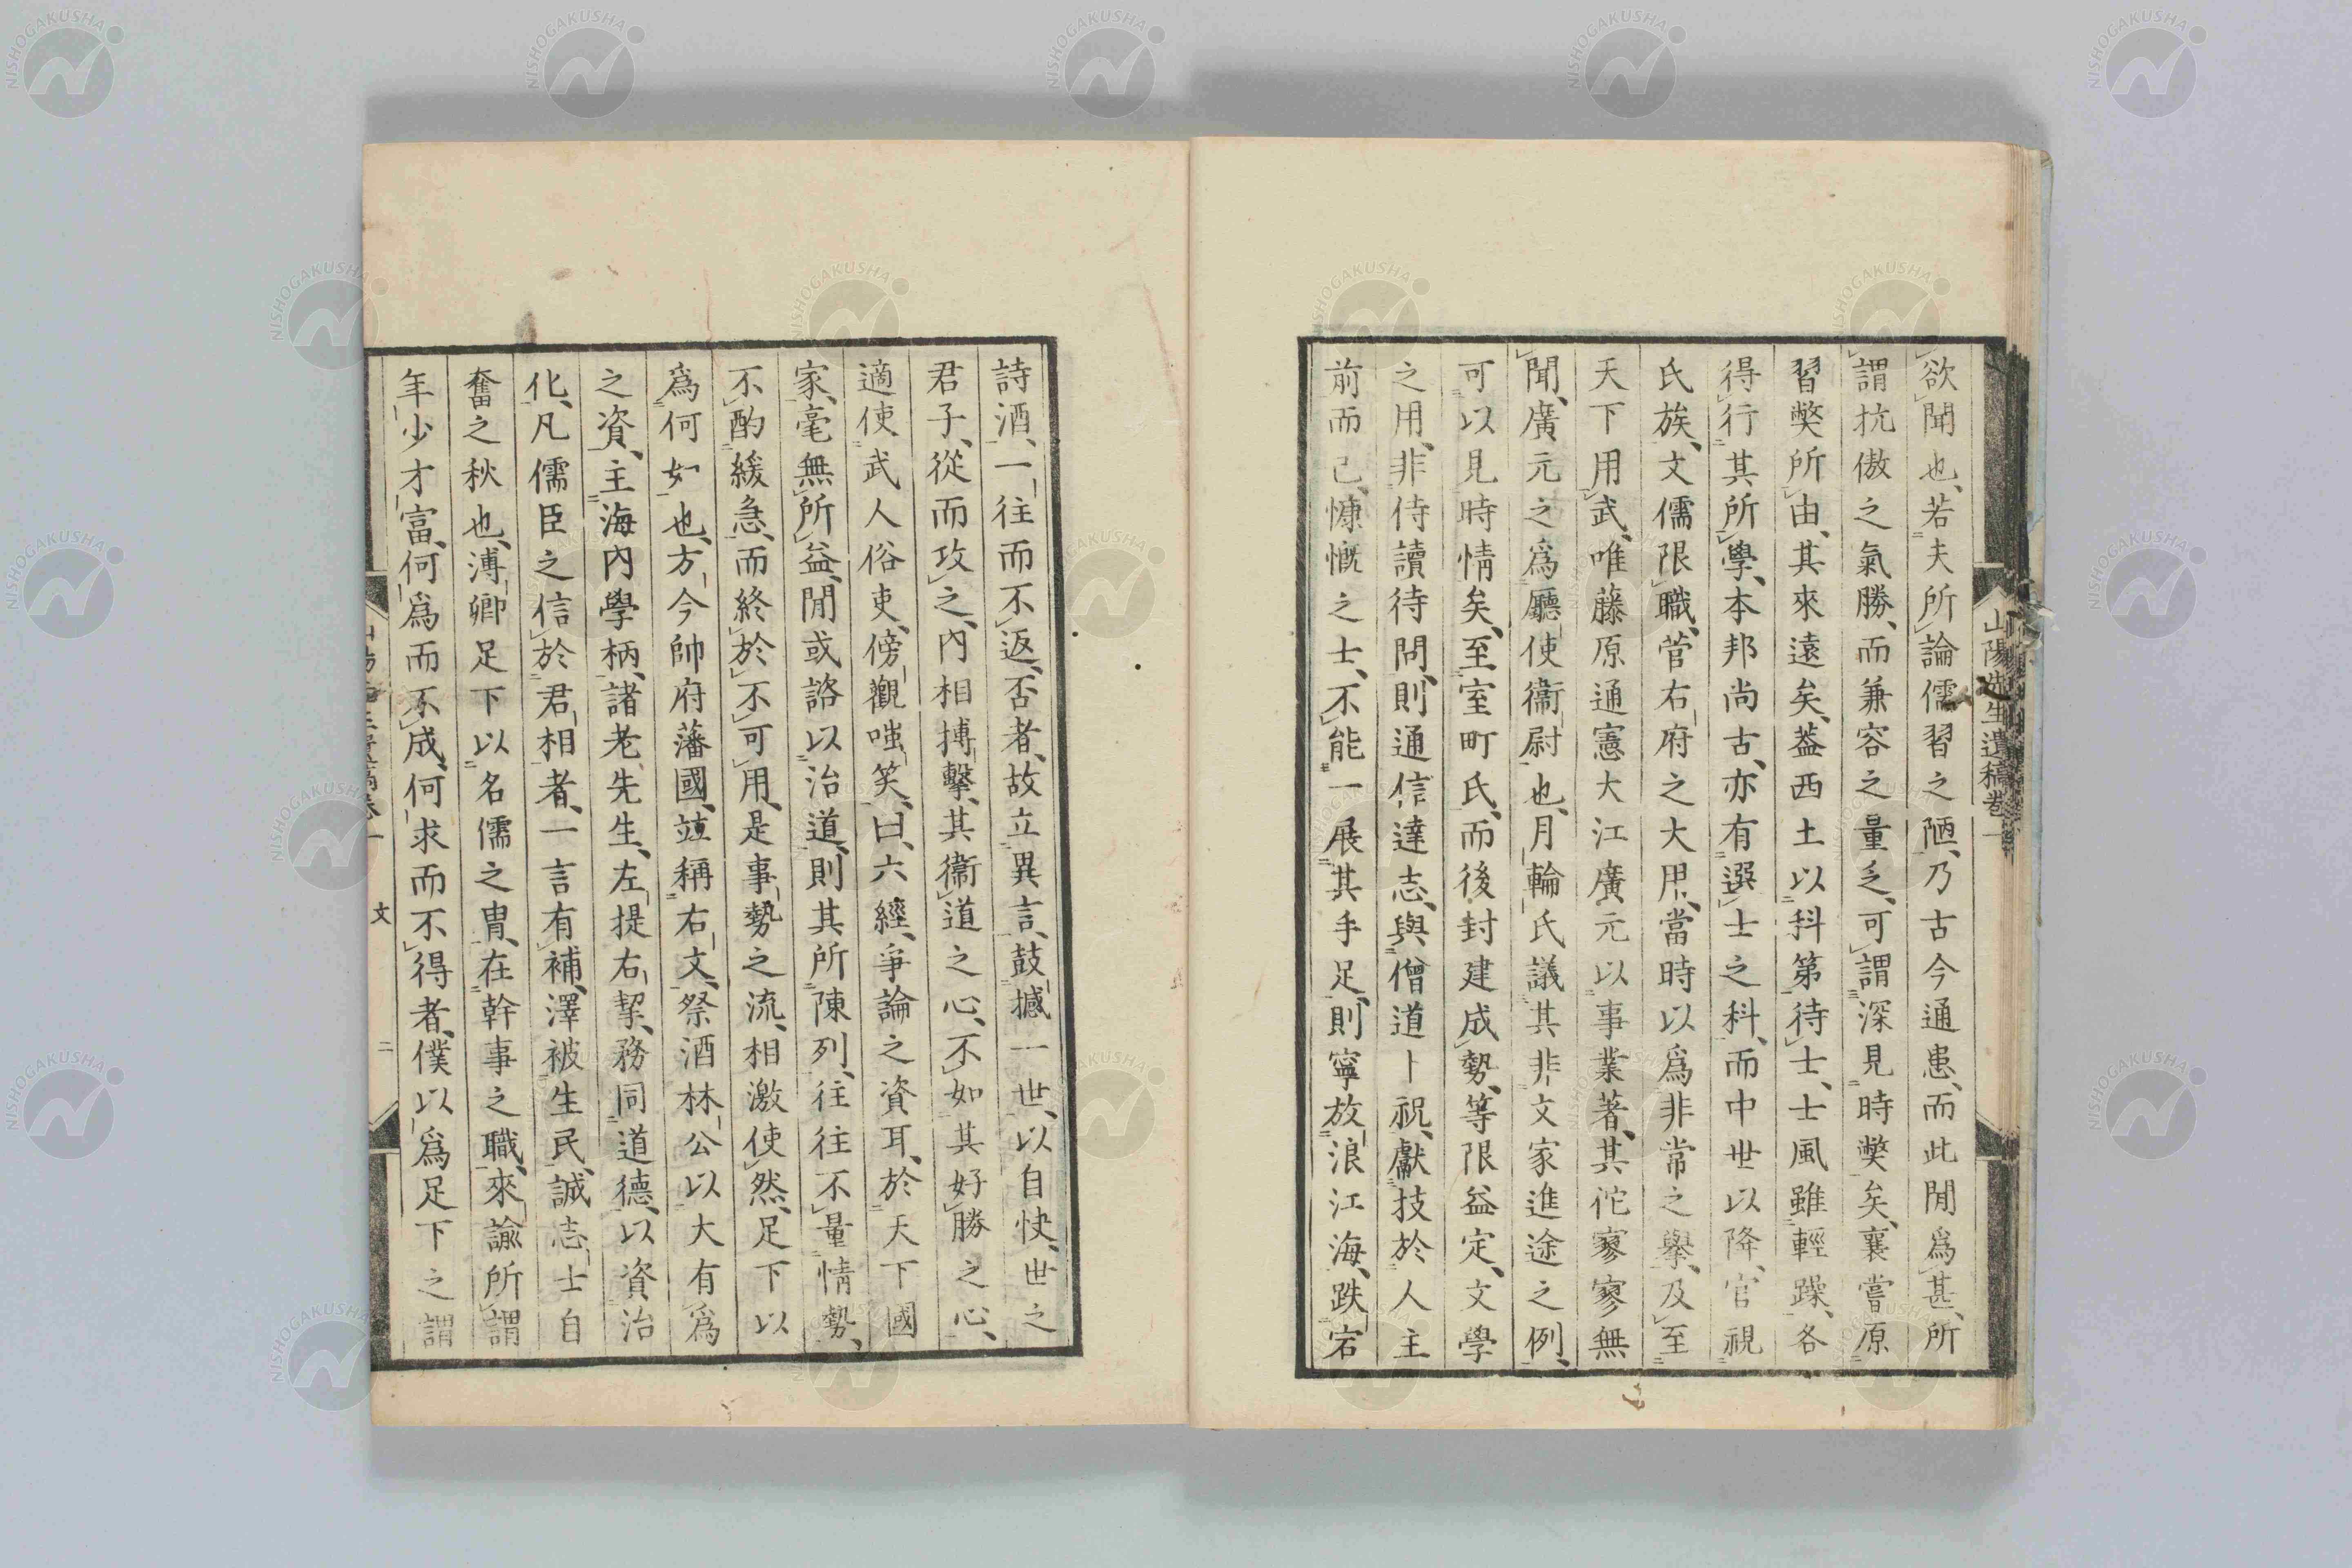 欲聞也、若夫所論儒習之陋、乃古今通患、而此間爲甚、所
謂抗傲之氣勝、而兼容之量乏、可謂深見時獘矣、襄嘗原
習獘所由、其來遠矣、蓋西土以科第待士、士風雖輕躁、各
得行其所學、本邦尚古、亦有選士之科、而中世以降、官視
氏族、文儒限職、菅右府之大用、當時以爲非常之擧、及至
天下用武、唯藤原通憲大江廣元以事業著、其佗寥寥無
聞、廣元之爲廳使衞尉也、月輪氏議其非文家進途之例、
可以見時情矣、至室町氏、而後封建成勢、等限益定、文學
之用、非侍讀待問、則通信達志、與僧道卜祝、獻技於人主
前而已、慷慨之士、不能一展其手足、則寧放浪江海、跌宕
山陽先生遺稿卷一
詩酒、一往而不返、否者、故立異言、鼓撼一世、以自快、世之
君子、從而攻之、內相搏擊、其衞道之心、不如其好勝之心、
適使武人俗吏、傍觀嗤笑、曰、六經爭論之資耳、於天下國
家、毫無所益、間或諮以治道、則其所陳列、往往不量情勢、
不酌緩急、而終於不可用、是事勢之流、相激使然、足下以
爲何如也、方今帥府藩國、竝稱右文、祭酒林公以大有爲
之資、主海內學柄、諸老先生、左提右挈、務同道德、以資治
化、凡儒臣之信於君相者、一言有補、澤被生民、誠志士自
奮之秋也、溥卿足下以名儒之冑、在幹事之職、來諭所謂
年少才富、何爲而不成、何求而不得者、僕以爲足下之謂
文 二
NISHOGAKUSHA